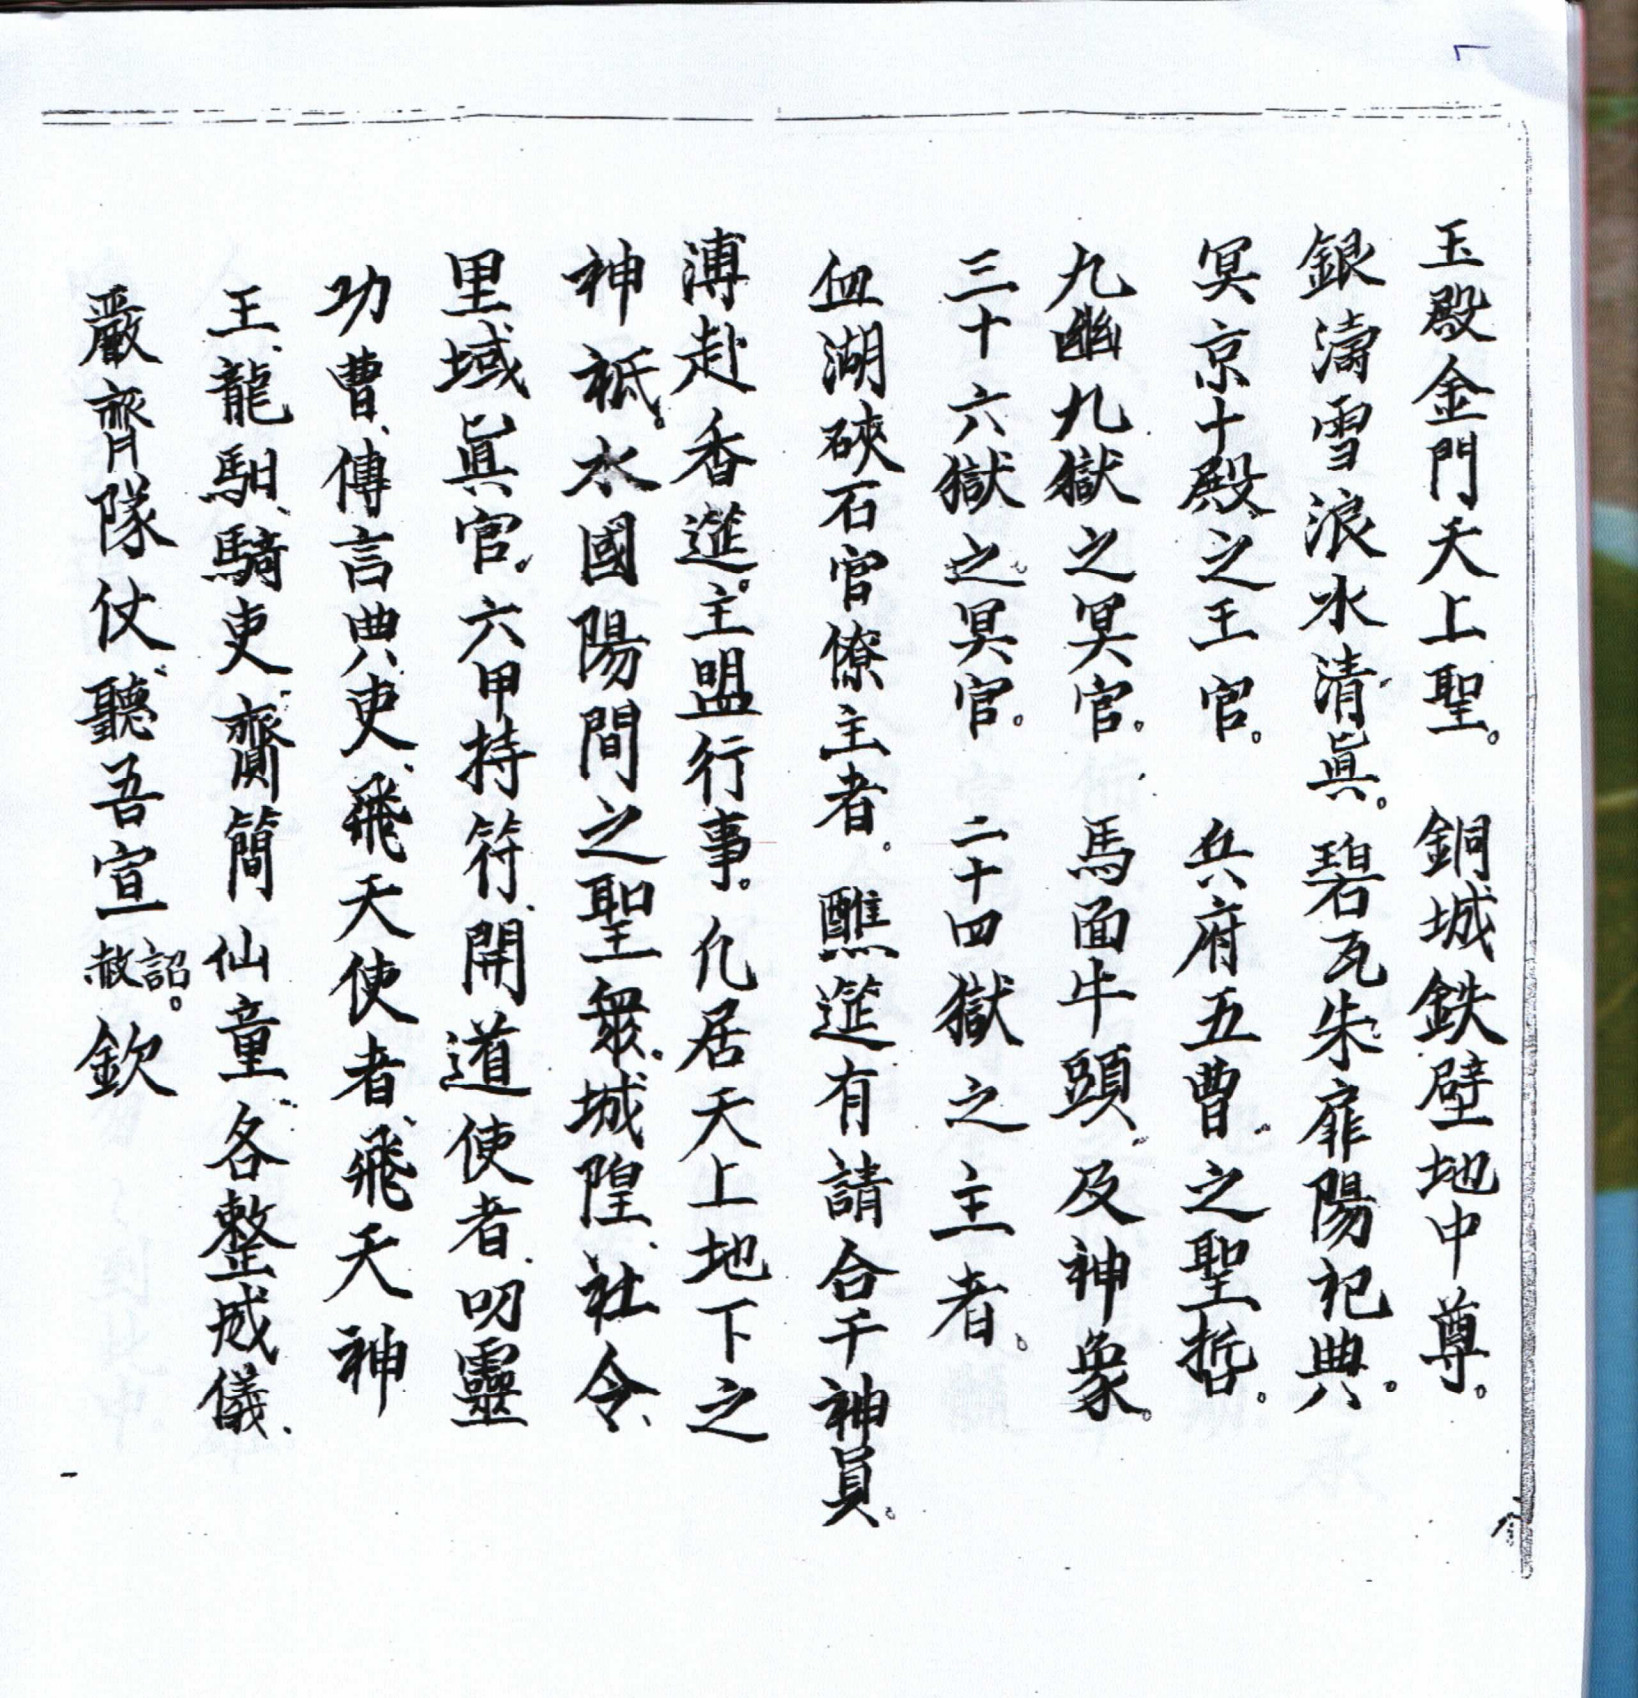 玉殿金門天上聖。銅城鉄壁地中尊。
銀濤雪浪水清眞。碧瓦朱扉陽祀典。
冥京十殿之王官。兵府五曹之聖哲。
九幽九獄之冥官。馬面牛頭及神象。
三十六獄之冥官。二十四獄之主者。
血湖硤石官僚主者。醮筵有請合干神員。
溥赴香筵。主盟行事。凢居天上地下之
神祇。水國陽間之聖衆。城隍、社令、
里域眞官。六甲持符、開道使者、叨靈
功曹、傳言典吏、飛天使者、飛天神
王、龍馹騎吏、齎簡仙童、各整威儀、
嚴齊隊仗、聽吾宣詔赦。欽